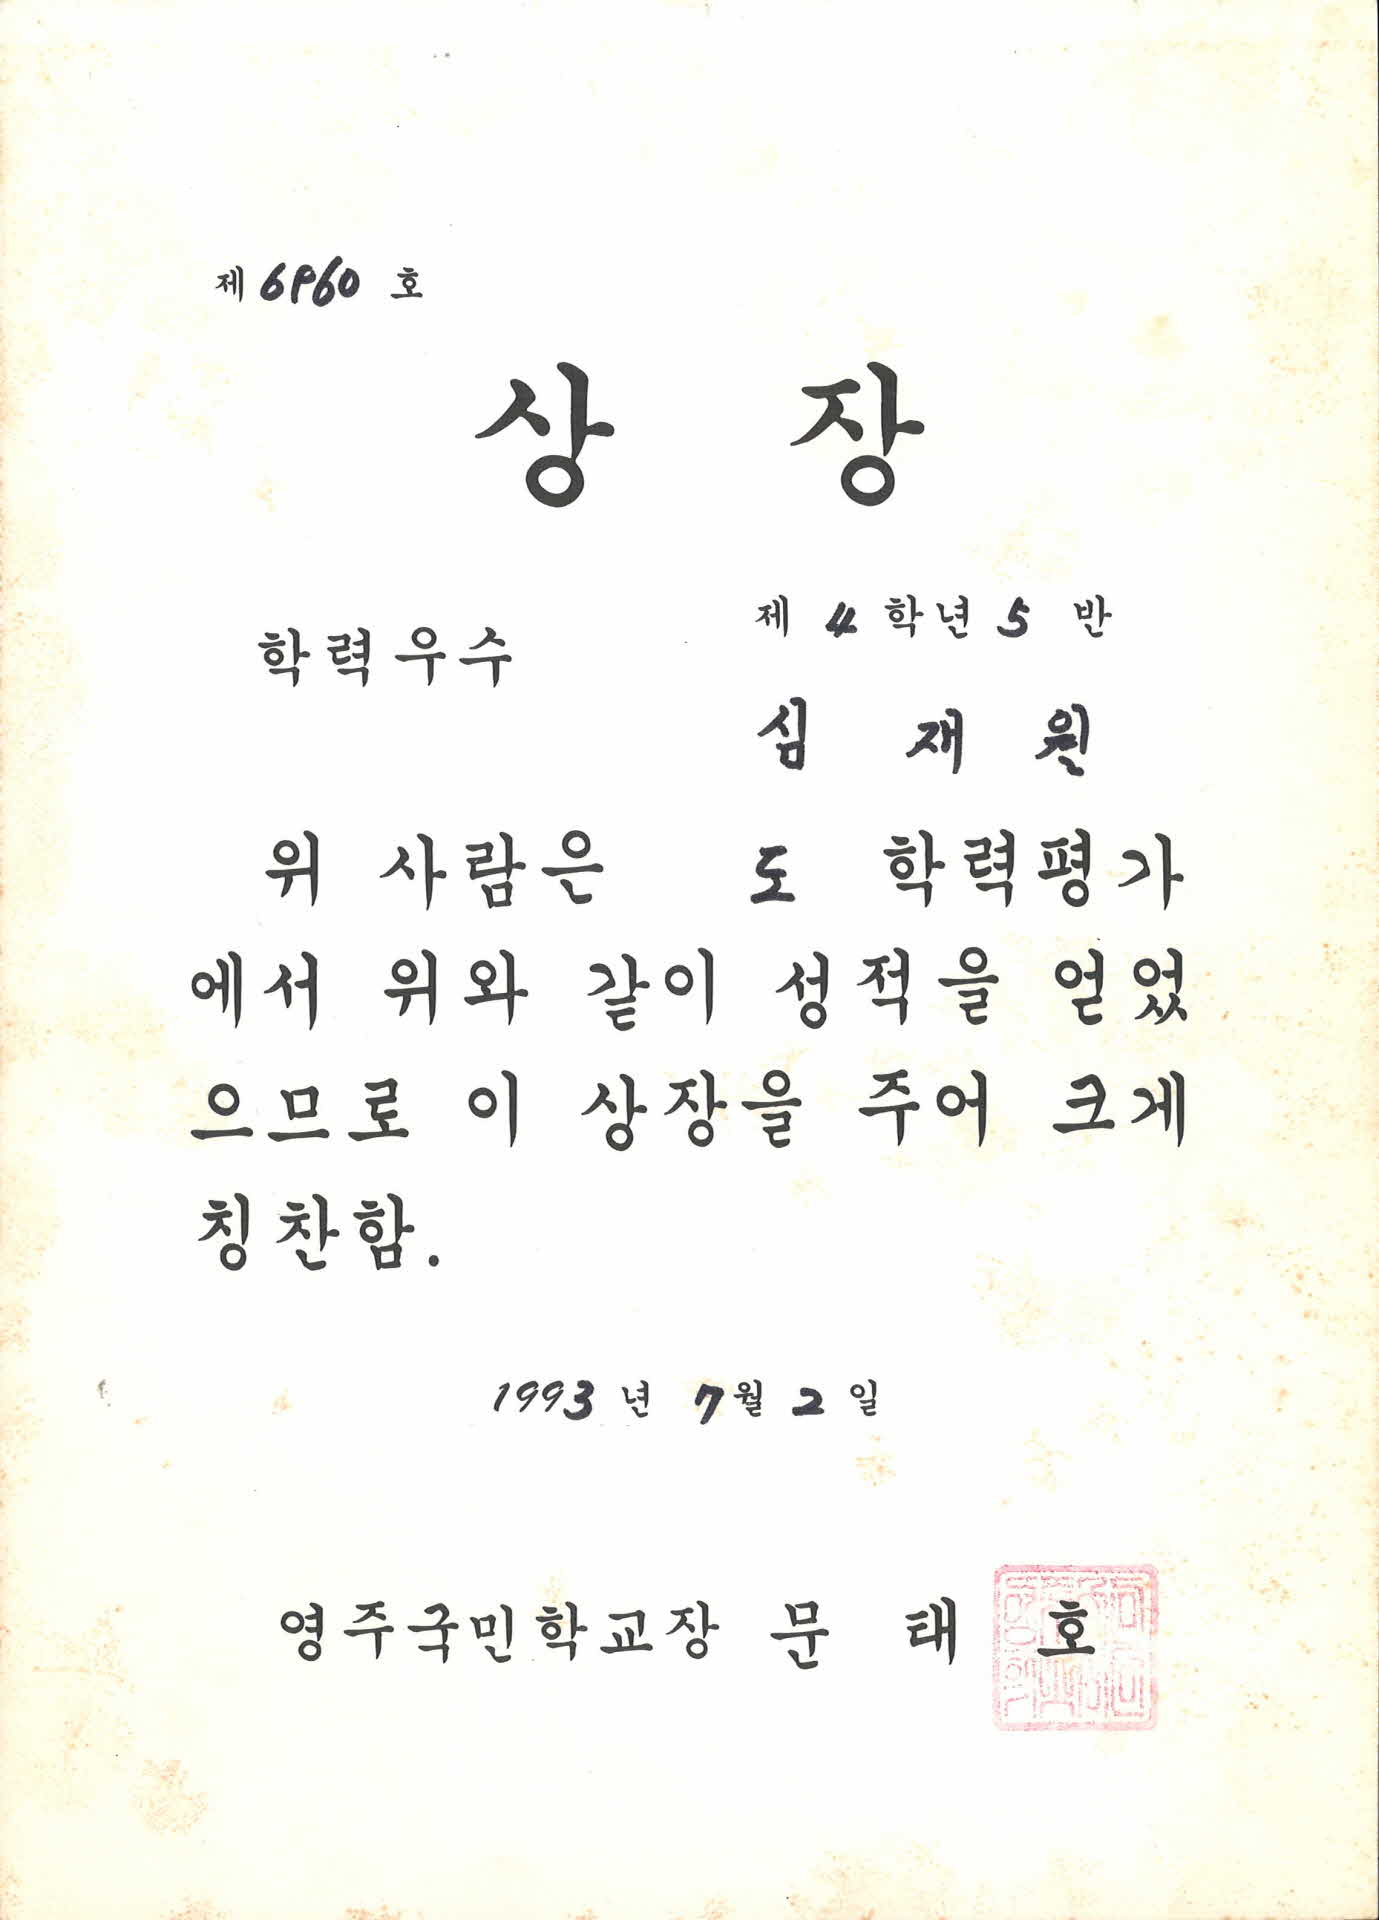 제 6960 호
상 장
학력우수
제 4 학년 5 반
심 재 원
위 사람은 도 학력평가
에서 위와 같이 성적을 얻었
으므로 이 상장을 주어 크게
칭찬함.
1993 년 7월 2 일
영주국민학교장 문 태 호